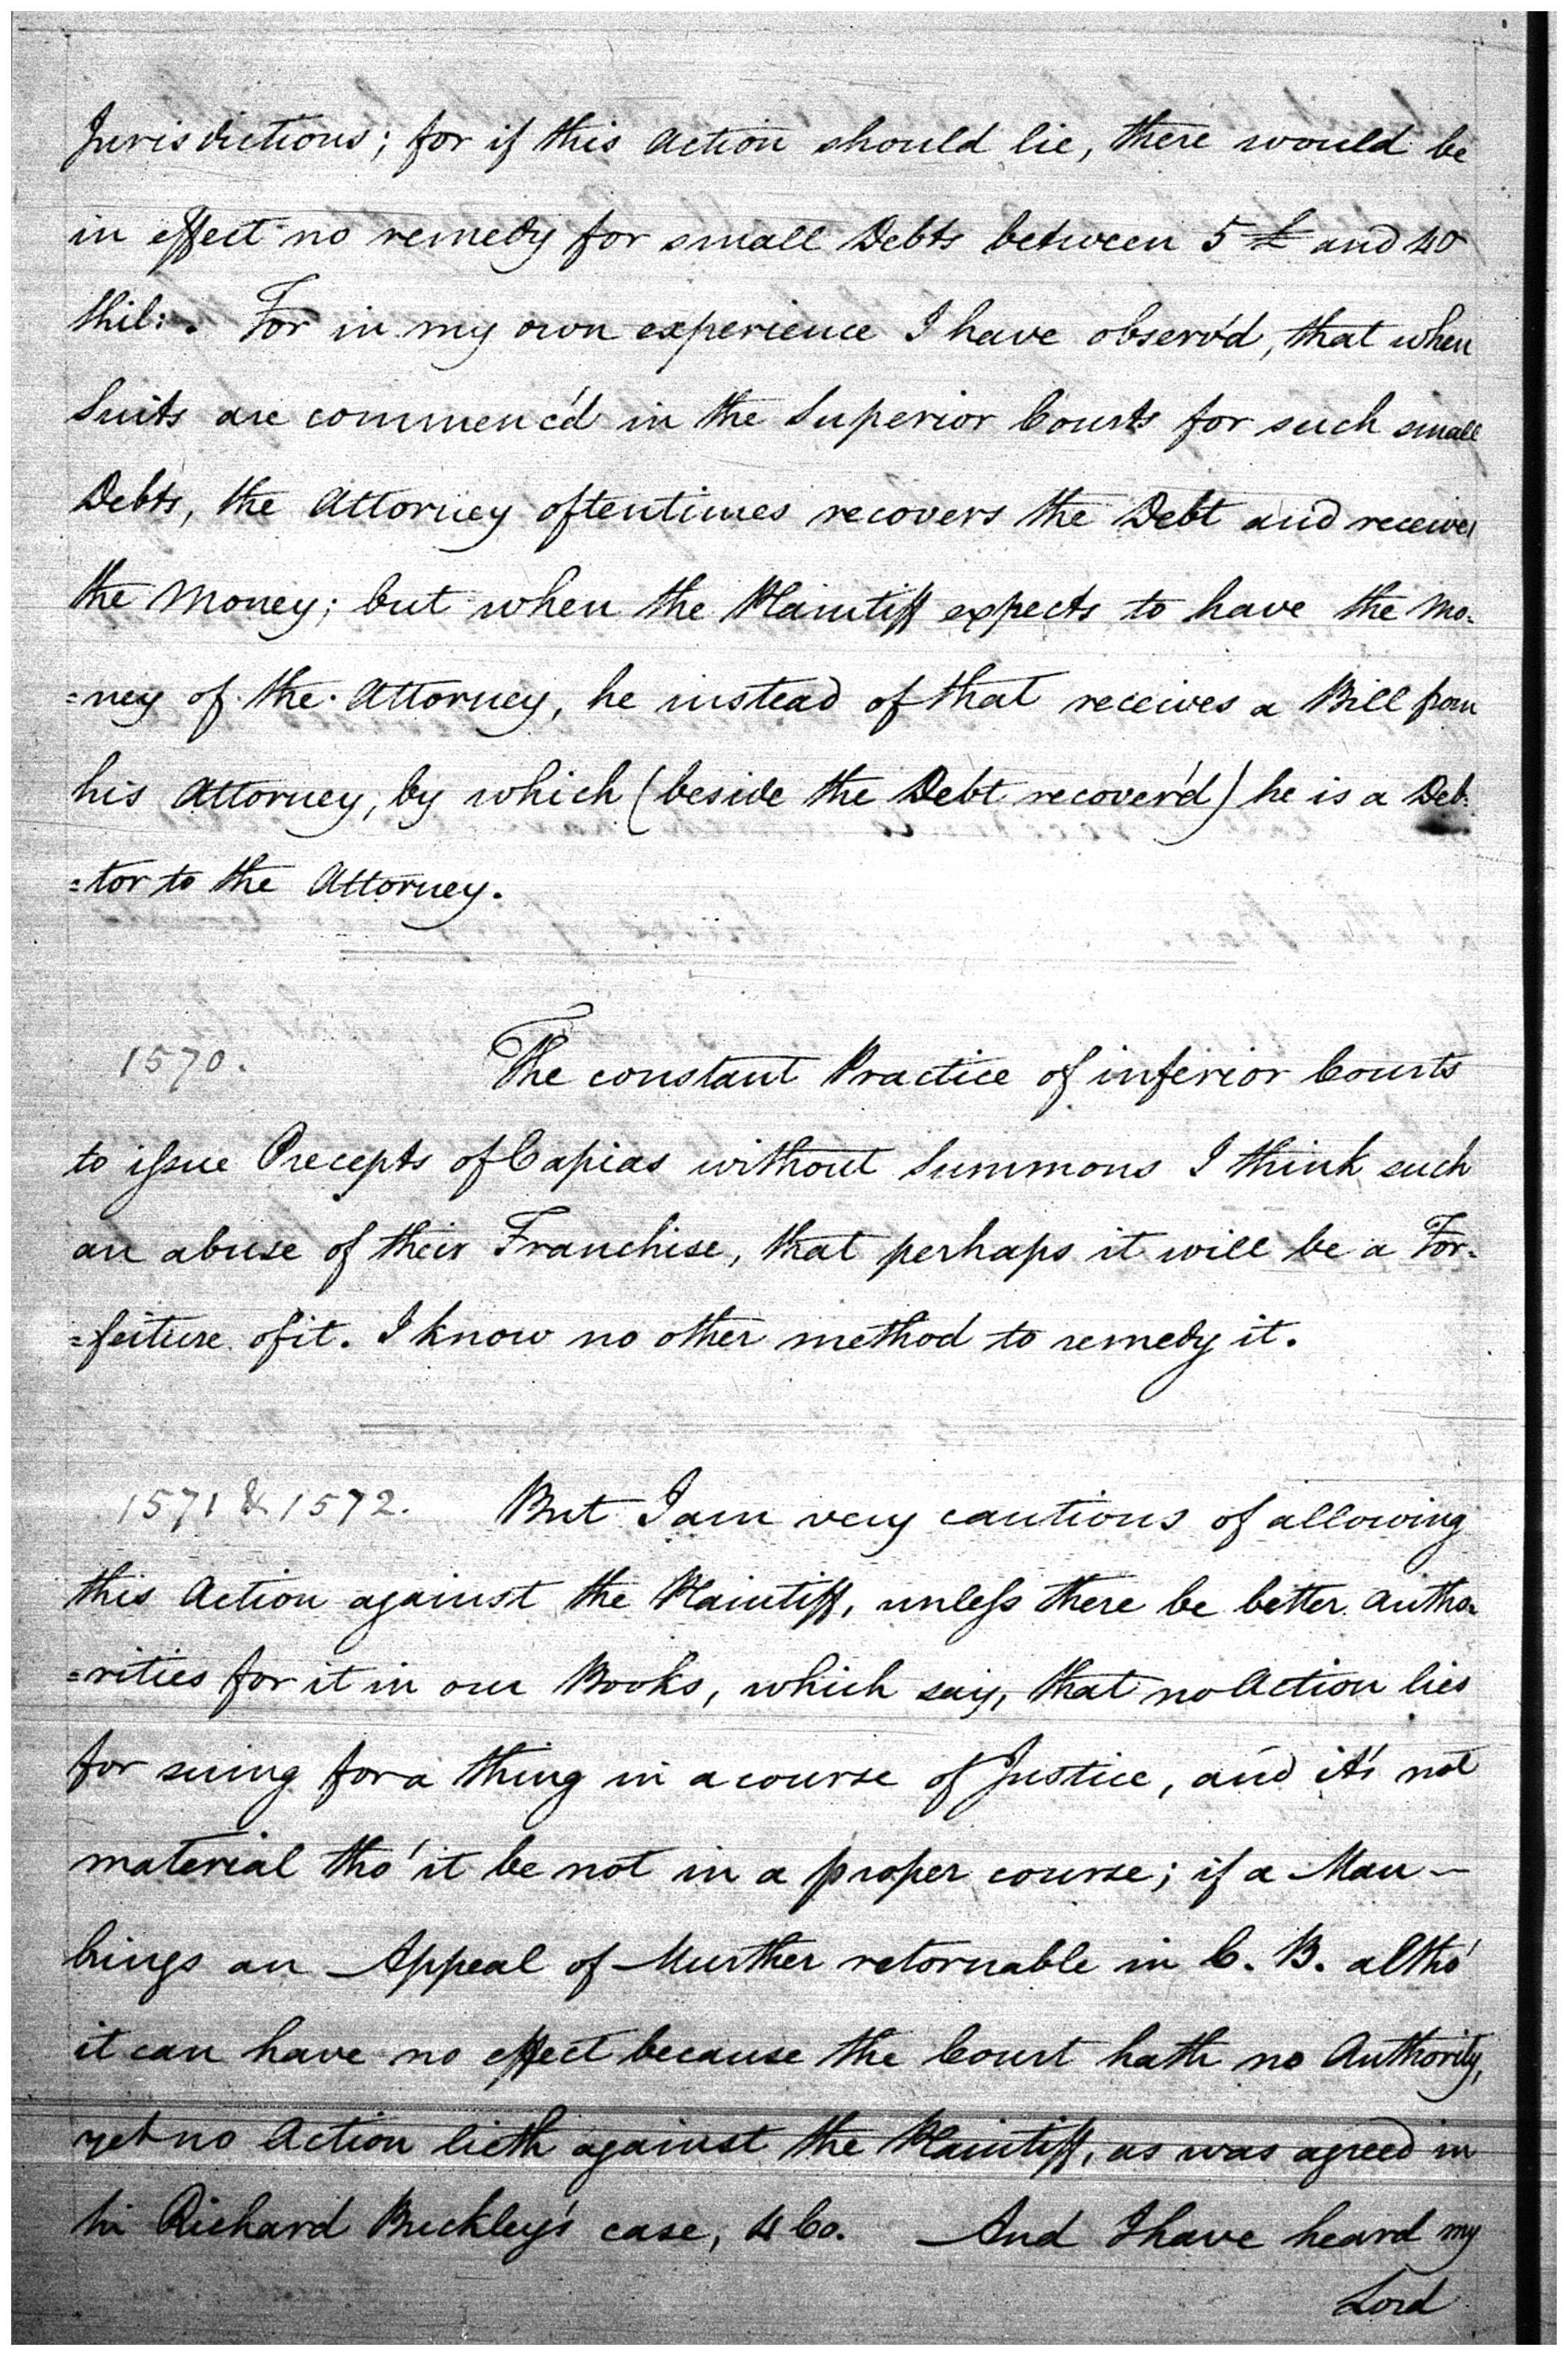 Jurisdictions; for if this Action should lie, there would be
in effect no remedy for small Debts between 5 £ and 40
shil: . For in my own experience I have observ'd, that when
Suits are commenc'd in the Superior Courts for such small
Debts, the Attorney oftentimes recovers the Debt and receives
the Money; but when the Plaintiff expects to have the Mo-
=ney of the Attorney, he instead of that receives a Bill from
his Attorney, by which (beside the Debt recover'd) he is a Deb-
=tor to the Attorney.
1570. The constant Practice of inferior Courts
to issue Precepts of Capias without Summons I think such
an abuse of their Franchise, that perhaps it will be a For-
=feiture of it. I know no other method to remedy it.
1571 & 1572. But I am very cautious of allowing
this Action against the Plaintiff, unless there be better Autho-
=rities for it in our Books, which say, that no Action lies
for suing for a thing in a course of Justice, and it's not
material tho' it be not in a proper course; if a Man
brings an Appeal of Murther retornable in C. B. altho'
it can have no effect because the Court hath no Authority,
yet no Action lieth against the Plaintiff, as was agreed in
Sir Richard Buckley's case, 4 Co. And I have heard my
Lord